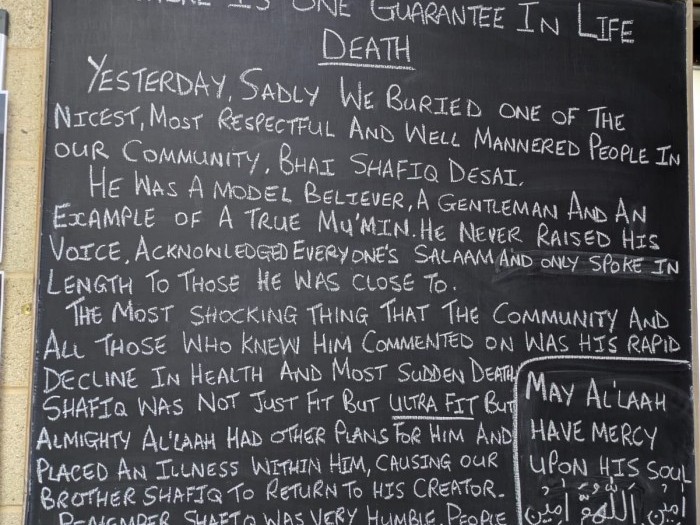 IS ONE GUARANTEE IN LIFE
DEATH
YESTERDAY, SADLY WE BURIED ONE OF THE
NICEST, MOST RESPECTFUL AND WELL MANNERED PEOPLE IN
OUR COMMUNITY, BHAI SHAFIQ DESAI.
HE WAS A MODEL BELIEVER, A GENTLEMAN AND AN
EXAMPLE OF A TRUE MU'MIN. HE NEVER RAISED HIS
VOICE, ACKNOWLEDGED EVERYONE'S SALAAM AND ONLY SPOKE IN
LENGTH TO THOSE HE WAS CLOSE TO.
THE MOST SHOCKING THING THAT THE COMMUNITY AND
ALL THOSE WHO KNEW HIM COMMENTED ON WAS HIS RAPID
DECLINE IN HEALTH AND MOST SUDDEN DEATH
SHAFIQ WAS NOT JUST FIT BUT ULTRA FIT BUT
ALMIGHTY AL'LAAH HAD OTHER PLANS FOR HIM AND
PLACED AN ILLNESS WITHIN HIM, CAUSING OUR
BROTHER SHAFIQ TO RETURN TO HIS CREATOR.
REMEMBER SHAFIQ WAS VERY HUMBLE. PEOPLE
MAY AL'LAAH
HAVE MERCY
UPON HIS SOUL
امين اللهم امين